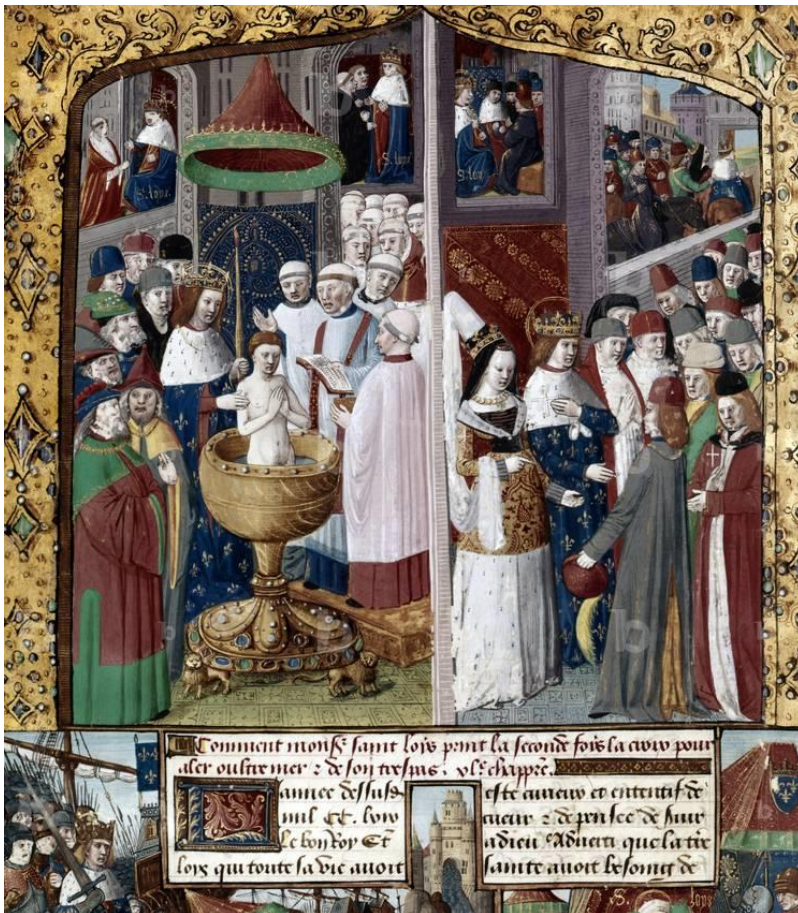 S. loys
S. loys
S. loys
Comment monsr saint loys print la seconde fois la croix pour
aler oultre mer & de son trespas. xle chappre.
annee dessusd
mil CC.
le bon Roy St
loys qui toute sa vie avoit
este curieux et ententif de
cueur & de pensee de suir
a dieu Adverti que la tre
sainte avoit besoing de
S. loys